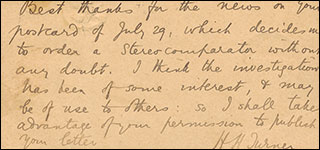 Best thanks for the news on your
postcard of July 29, which decides me
to order a Stereocomparator without
any doubt. I think the investigation
has been of some interest, & may
be of use to others: so I shall take
advantage of your permission to publish
your letter
H H Turner